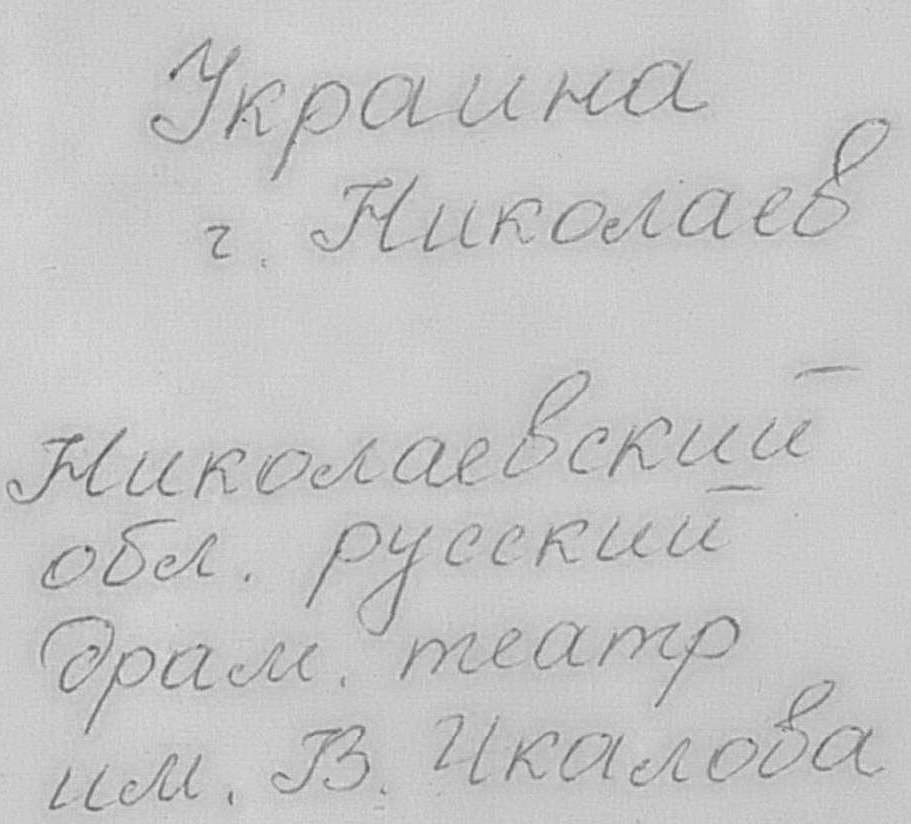 Украина
г. Николаев
Николаевский
обл. русский
драм. театр
им. В. Чкалова